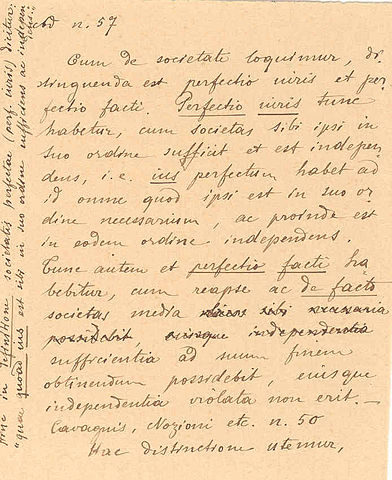 ad n. 57
Cum de societate loquimur, di-
stinguenda est perfectio iuris et per-
fectio facti. Perfectio iuris tunc
habetur, cum societas sibi ipsi in
suo ordine sufficit et est indepen-
dens, i.e. ius perfectum habet ad
id omne quod ipsi est in suo or-
dine necessarium, ac proinde est
in eodem ordine independens.
Tunc autem et perfectio facti ha
bebitur, cum reapse ac de facto
societas media sibi necessaria
possidebit, eiusque independentia
sufficientia ad suum finem
obtinendum possidebit, eiusque
independentia violata non erit. —
Cavagnis, Nozioni etc. n. 50
Hac distinctione utemur,
Hinc in definitione societatis perfectae (perf. iuris) dicitur:
"quae quoad ius est sibi in suo ordine sufficiens ac indepen
dens."